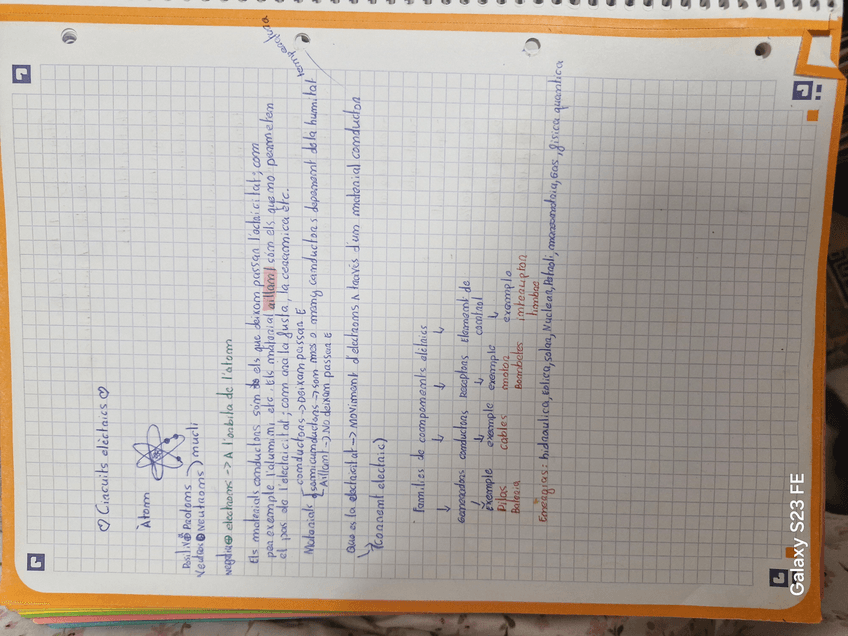 ♡ Circuits elèctrics ♡
Àtom
Positiu ⊕ Protoms
Neutres ● Neutroms ) nucli
negatiu ⊖ electroms -> A l'òrbita de l'àtom
Els materials conductors som els que deixam passar l'electricitat; com
per exemple l'alumini etc. Els material aïllant som els que no permetem
el pas de l'electricitat; com ara la fusta, la ceràmica etc.
Materials
conductors -> Deixam passar E
semiconductors -> som mes o meny conductors depenemt de la humitat
temperatura
Aïllant -> No deixam passar E
Que es la electricitat -> Moviment d'electroms a través d'um material conductor
(Corrent electric)
Families de components elèctrics
Generadors conductors Receptors Element de
control
exemple exemple exemple exemple
Pilas cables motor interruptor
Bateria Bombetes timbre
Energias: hidraulica, eolica, solar, Nuclear, Petroli, mareomotriu, Gas, fisica quantica
Galaxy S23 FE